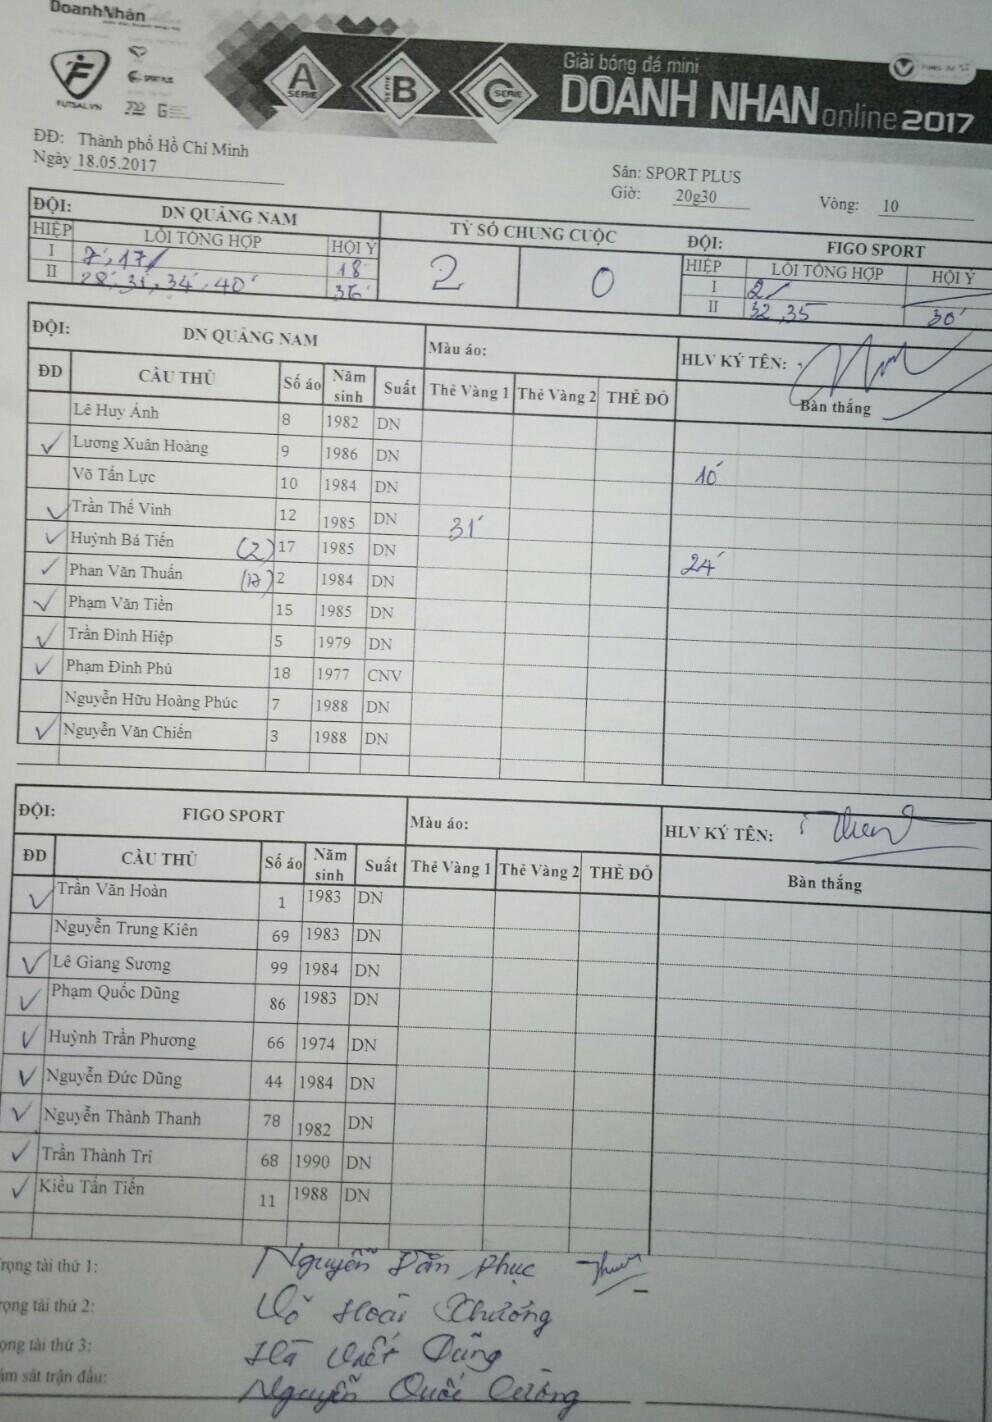 DoanhNhân
FUTSAL.VN
SPORT PLUS
A SERIE
B
C SERIE
Giải bóng đá mini
DOANH NHAN online 2017
ĐĐ: Thành phố Hồ Chí Minh
Ngày 18.05.2017
Sân: SPORT PLUS
Giờ: 20g30
Vòng: 10
ĐỘI: DN QUẢNG NAM TỶ SỐ CHUNG CUỘC ĐỘI: FIGO SPORT
HIỆP LỖI TỔNG HỢP HỘI Ý 2 0 HIỆP LỖI TỔNG HỢP HỘI Ý
I 7', 17' 18' I 2'
II 28', 31', 34', 40' 36' II 32, 35 30'
ĐỘI: DN QUẢNG NAM Màu áo: HLV KÝ TÊN:
ĐD CẦU THỦ Số áo Năm sinh Suất Thẻ Vàng 1 Thẻ Vàng 2 THẺ ĐỎ Bàn thắng
Lê Huy Ánh 8 1982 DN
✓ Lương Xuân Hoàng 9 1986 DN
Võ Tấn Lực 10 1984 DN 10'
✓ Trần Thế Vinh 12 1985 DN 31'
✓ Huỳnh Bá Tiến (2) 17 1985 DN 24'
✓ Phan Văn Thuấn (17) 2 1984 DN
✓ Phạm Văn Tiền 15 1985 DN
✓ Trần Đình Hiệp 5 1979 DN
✓ Phạm Đình Phú 18 1977 CNV
Nguyễn Hữu Hoàng Phúc 7 1988 DN
✓ Nguyễn Văn Chiến 3 1988 DN
ĐỘI: FIGO SPORT Màu áo: HLV KÝ TÊN:
ĐD CẦU THỦ Số áo Năm sinh Suất Thẻ Vàng 1 Thẻ Vàng 2 THẺ ĐỎ Bàn thắng
✓ Trần Văn Hoàn 1 1983 DN
Nguyễn Trung Kiên 69 1983 DN
✓ Lê Giang Sương 99 1984 DN
✓ Phạm Quốc Dũng 86 1983 DN
✓ Huỳnh Trần Phương 66 1974 DN
✓ Nguyễn Đức Dũng 44 1984 DN
✓ Nguyễn Thành Thanh 78 1982 DN
✓ Trần Thành Trí 68 1990 DN
✓ Kiều Tấn Tiến 11 1988 DN
rọng tài thứ 1: Nguyễn Dân Phục
ọng tài thứ 2: Võ Hoài Chương
ọng tài thứ 3: Hà Viết Dũng
ám sát trận đấu: Nguyễn Quốc Cường